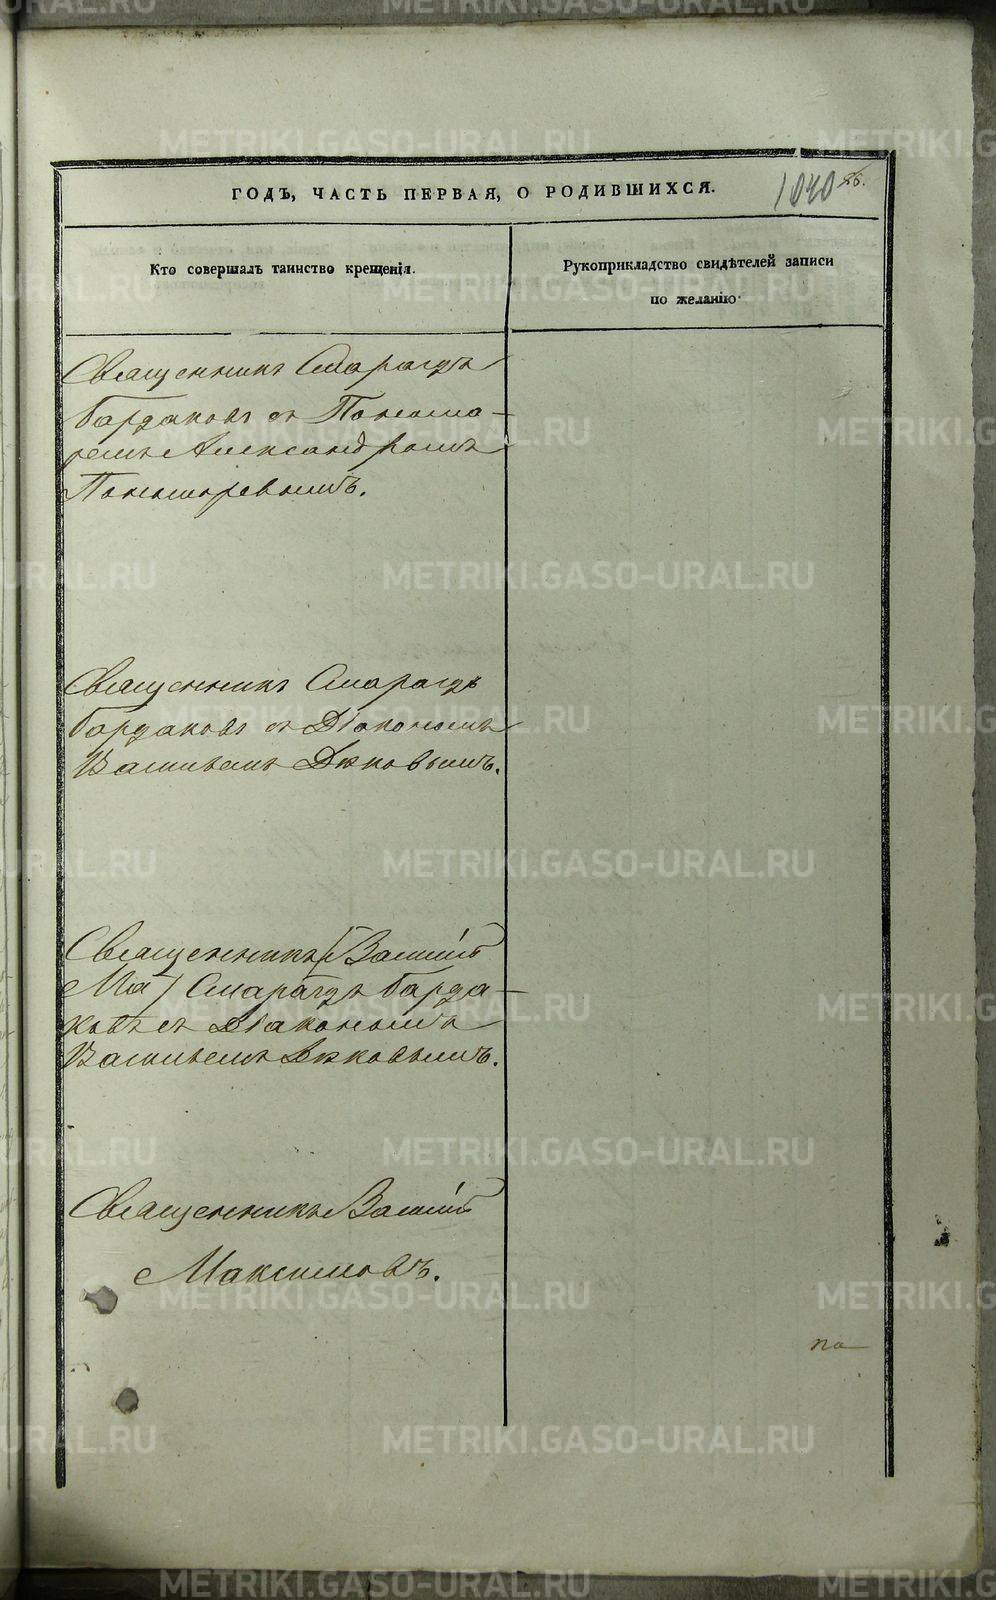 ГОДЪ, ЧАСТЬ ПЕРВАЯ, О РОДИВШИХСЯ.
1040 об.
Кто совершалъ таинство крещенія.
Рукоприкладство свидѣтелей записи
по желанію
Священникъ Смарагдъ
Бардаковъ съ Понома-
ремъ Александромъ
Пономаревымъ.
Священникъ Смарагдъ
Бардаковъ съ Діакономъ
Василіемъ Диковымъ.
Священникъ (Василій
Ма) Смарагдъ Барда-
ковъ съ Діакономъ
Василіемъ Диковымъ.
Священникъ Василій
Максимовъ.
по
METRIKI.GASO-URAL.RU